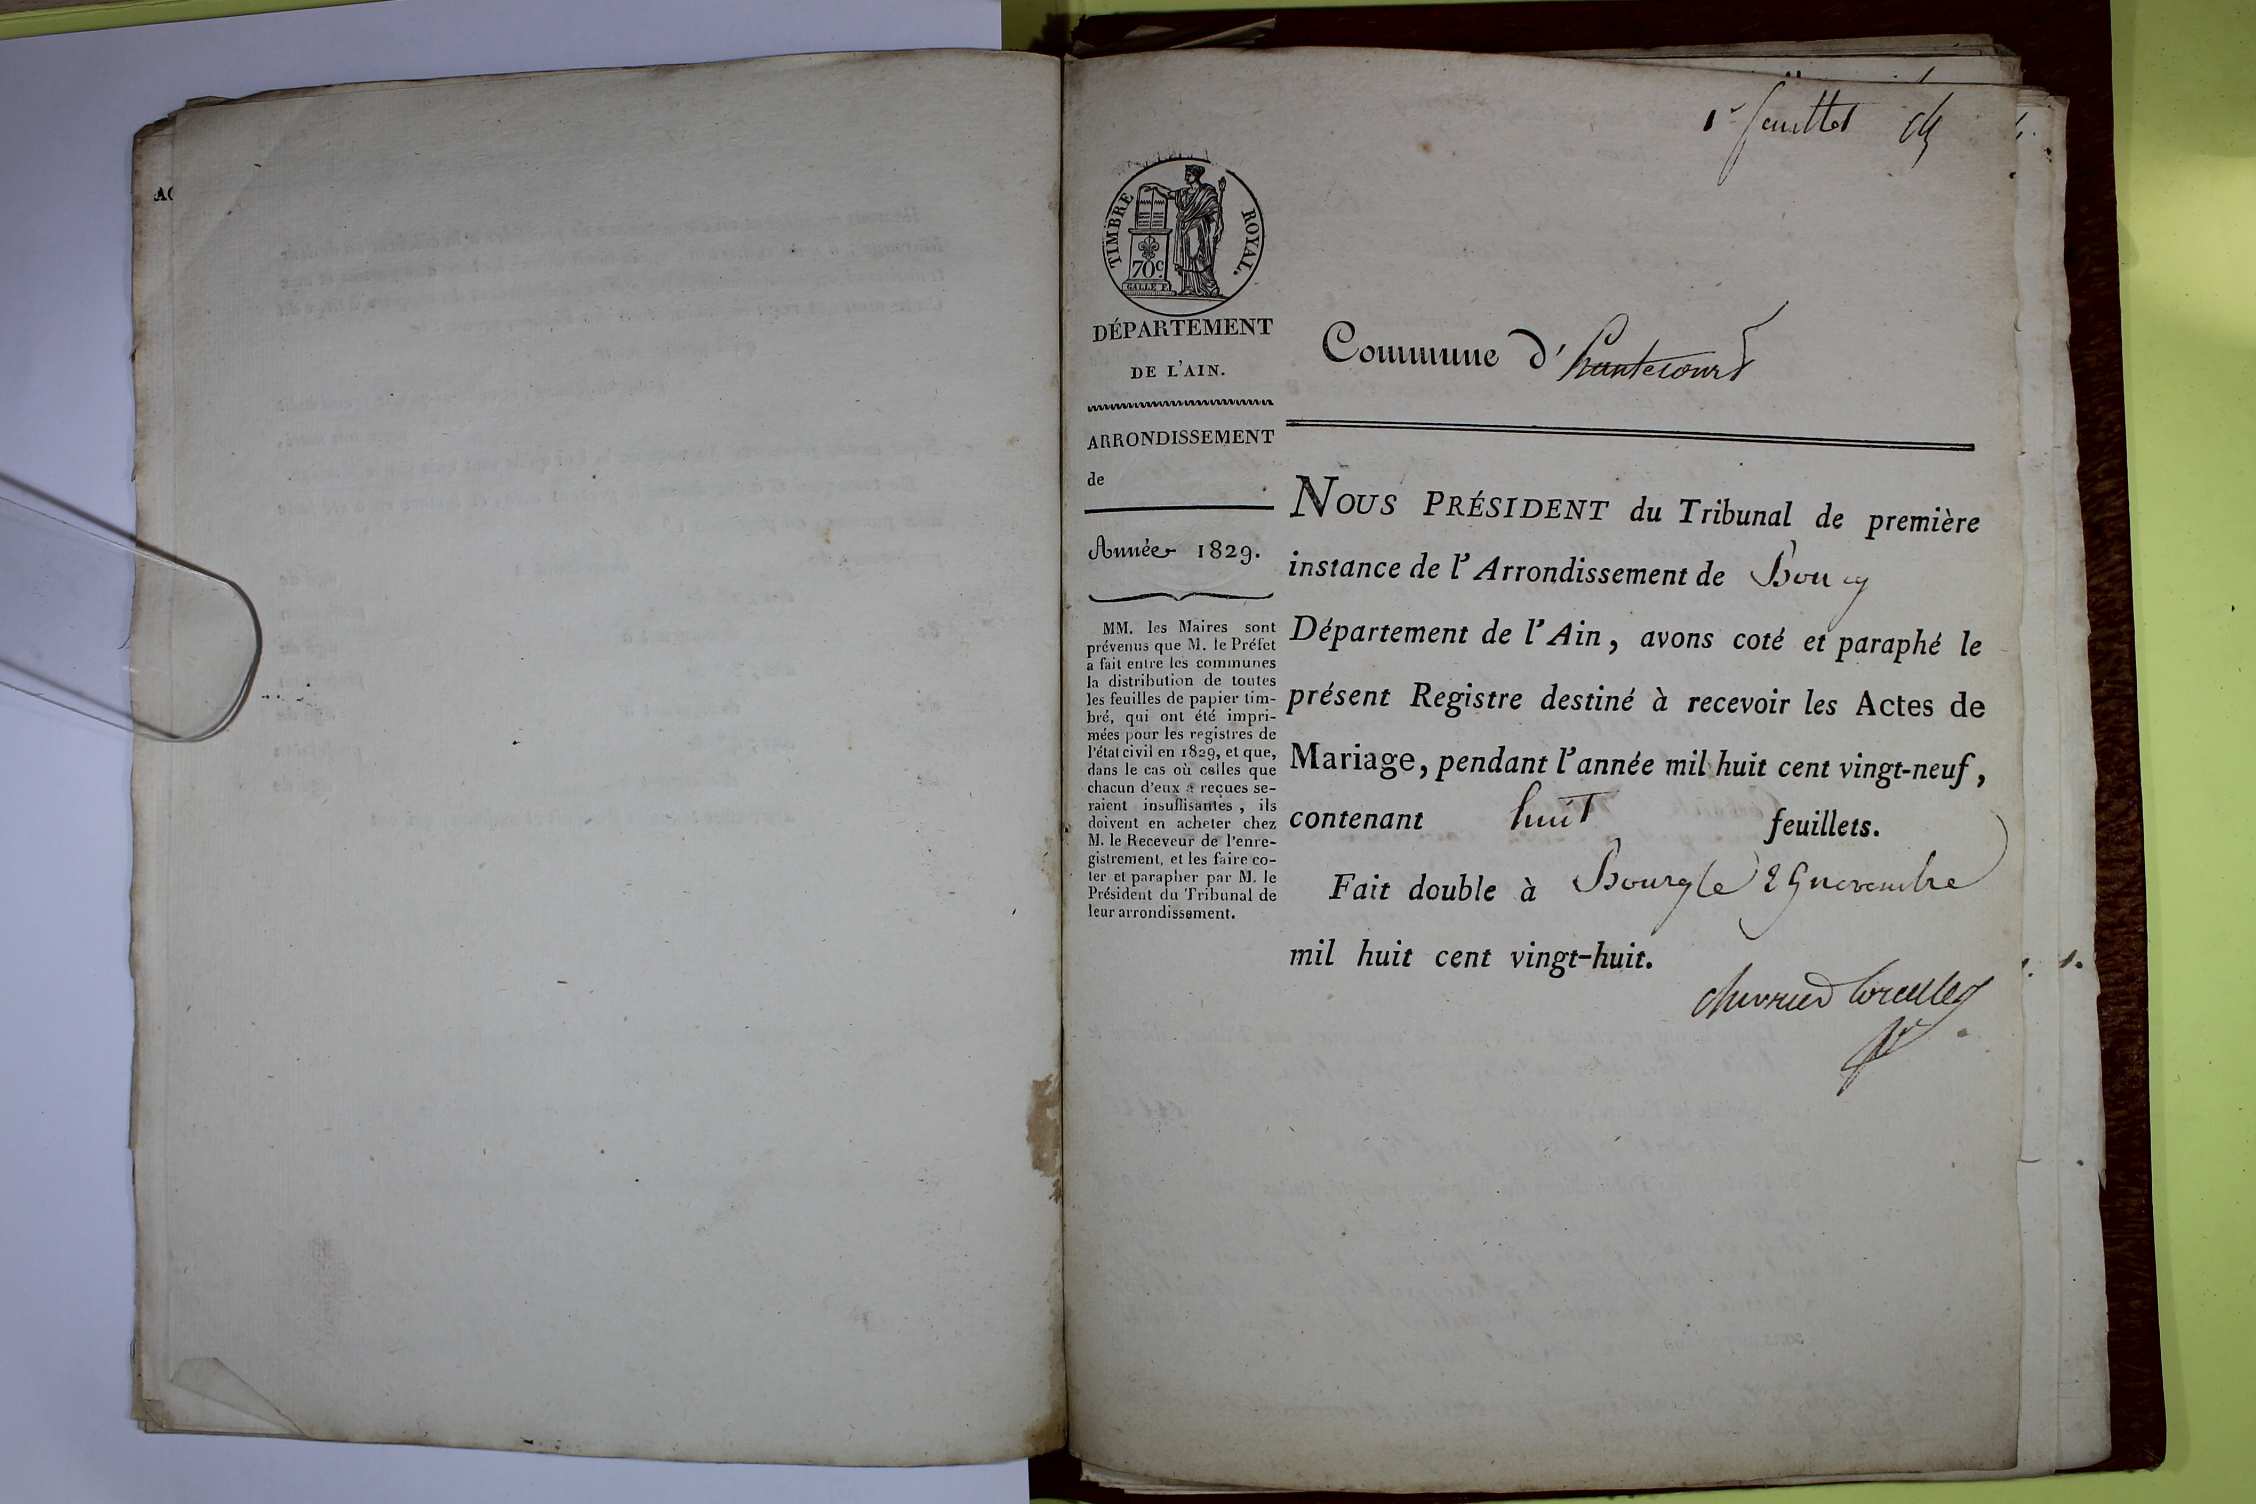 1er feuillet
TIMBRE ROYAL.
70c
GALLE F.
DÉPARTEMENT
DE L'AIN.
ARRONDISSEMENT
de
Année 1829.
MM. les Maires sont
prévenus que M. le Préfet
a fait entre les communes
la distribution de toutes
les feuilles de papier tim-
bré, qui ont été impri-
mées pour les registres de
l'état civil en 1829, et que,
dans le cas où celles que
chacun d'eux a reçues se-
raient insuffisantes, ils
doivent en acheter chez
M. le Receveur de l'enre-
gistrement, et les faire co-
ter et parapher par M. le
Président du Tribunal de
leur arrondissement.
Commune d'hautecourt
NOUS PRÉSIDENT du Tribunal de première
instance de l'Arrondissement de Bourg
Département de l'Ain, avons coté et paraphé le
présent Registre destiné à recevoir les Actes de
Mariage, pendant l'année mil huit cent vingt-neuf,
contenant huit feuillets.
Fait double à Bourg le 29 novembre
mil huit cent vingt-huit.
chevrier Corcelles